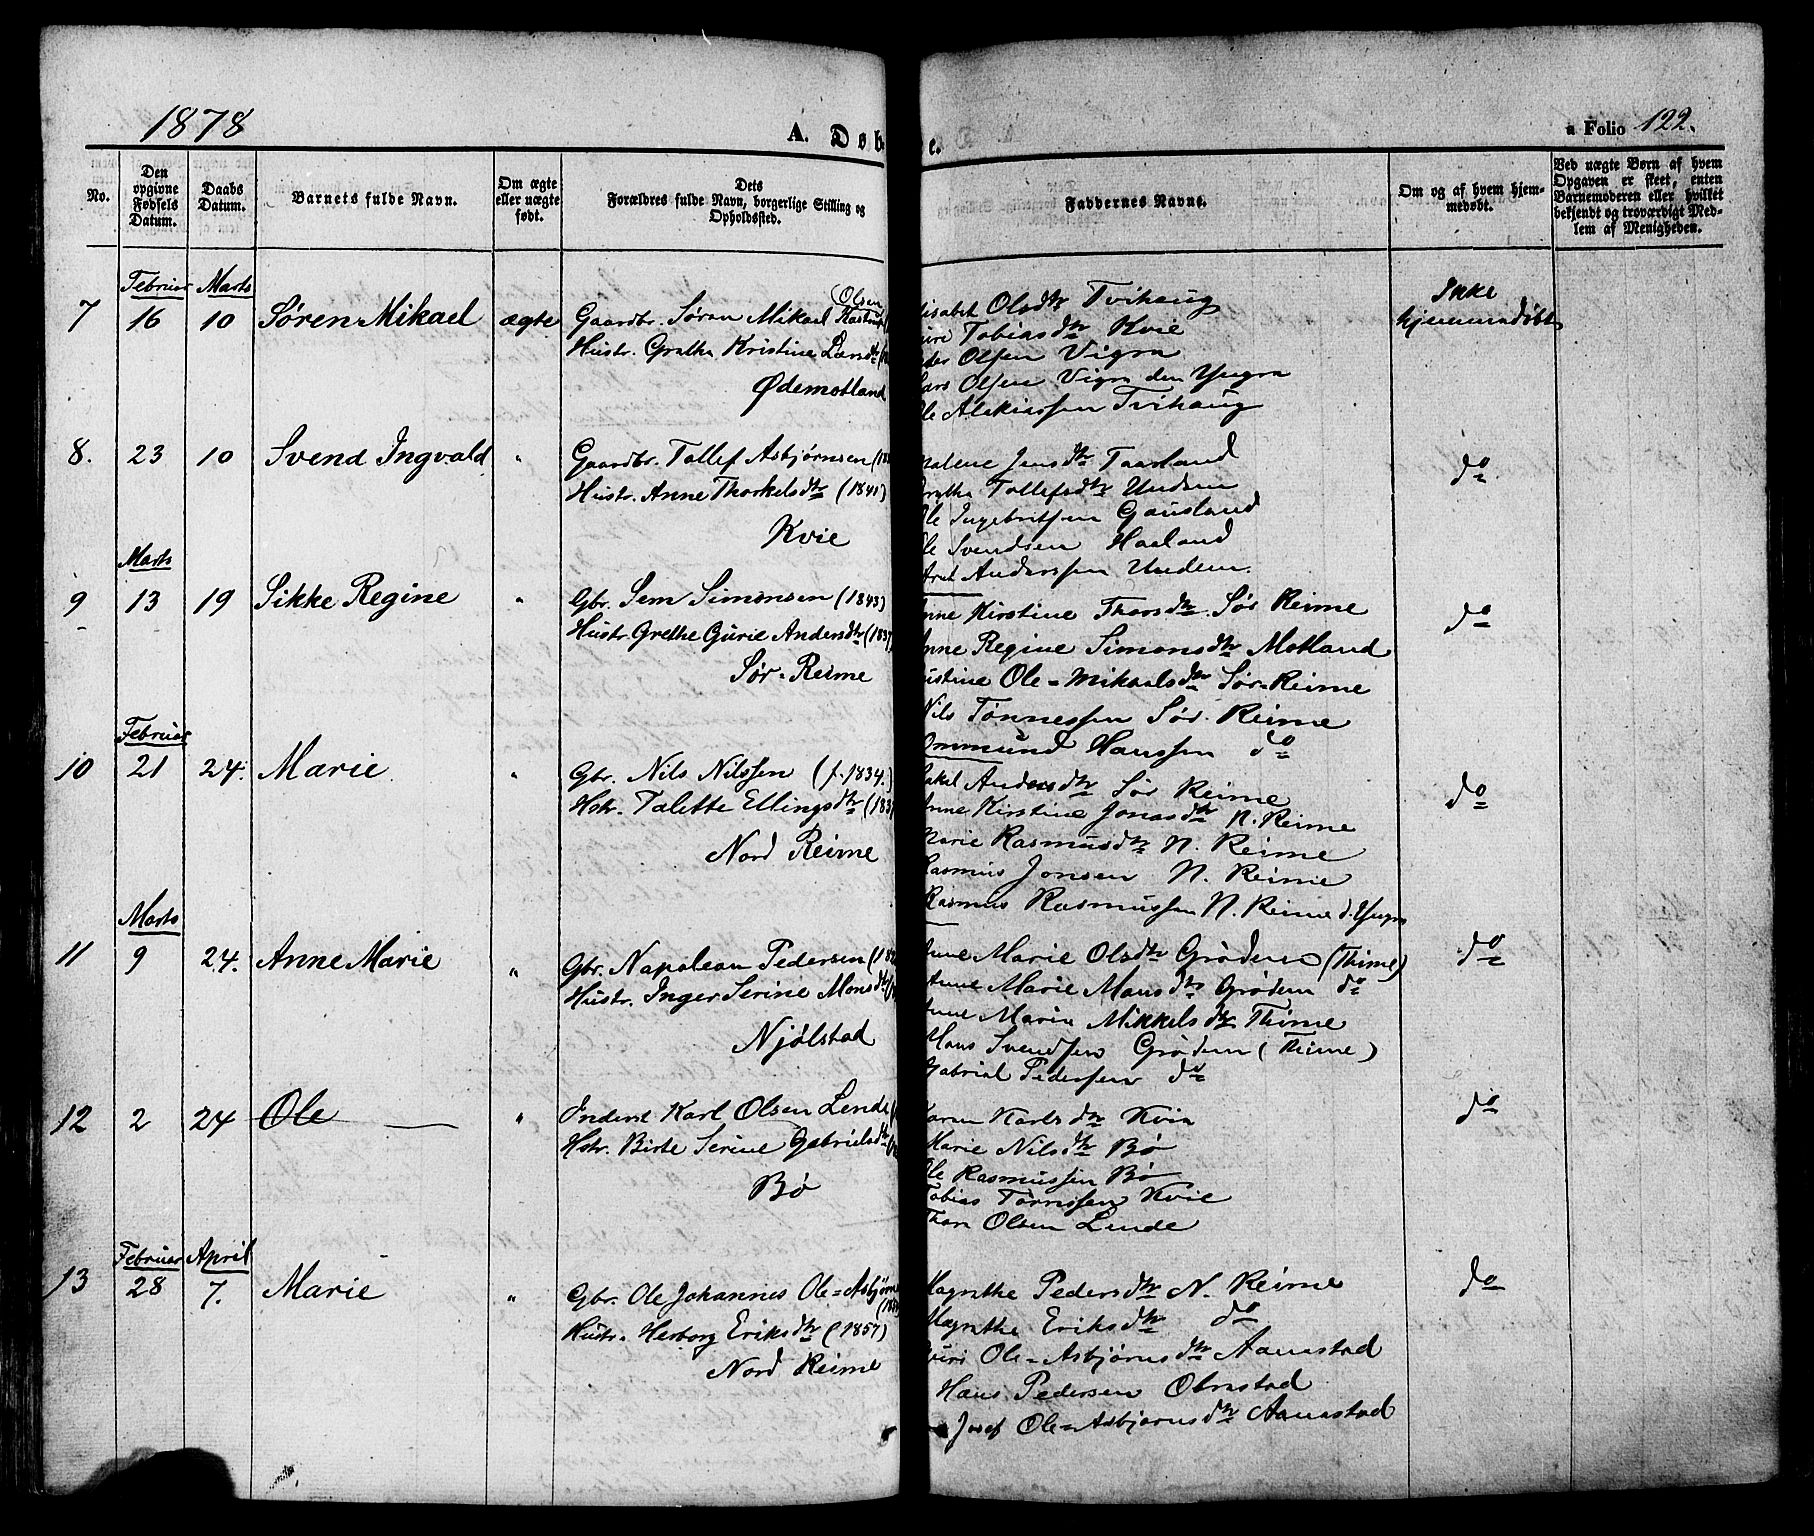 1878
A. Døb
e.
a Folio 122.
No.
Den opgivne Fødsels Datum.
Daabs Datum.
Barnets fulde Navn.
Om ægte eller uægte født.
Dets Forældres fulde Navn, borgerlige Stilling og Opholdssted.
Faddernes Navne.
Om og af hvem hjemmedøbt.
Ved uægte Børn af hvem Opgaven er skeet, enten Barnemoderen eller hvilket bekjendt og troværdigt Medlem af Menigheden.
Februar Marts
7 16 10 Søren Mikael ægte Gaardbr. Søren Mikael (Olsen
Hustr. Grethe Kristine
Ødemotland
Olsdtr Tvihaug
Tobiasdtr Kvie
Olsen Vigra
Olsen Vigra den Yngra
Tvihaug
Ikke hjemmedøbt
8. 23 10 Svend Ingvald " Gaardbr. Tollef Asbjørnsen
Hustr. Anne Thorkelsdtr (1840)
Kvie
Malene Jensdtr Taarland
Tollefsdtr Undem
Ole Ingebritsen Gausland
Ole Svendsen Haaland
Anderssen Undem.
do
Marts
9 13 19 Sikke Regine " Gbr. Sem Simonsen (1843)
Hustr. Grethe Gurie Andersdtr
Sør-Reime
Anne Kirstine Thorsdtr. Sør Reime
Anne Regine Simonsdtr Motland
Ole=Mikaelsdtr Sør-Reime
Nils Tønnessen Sør. Reime
Ommund Hanssen do
do
Februar
10 21 24. Marie " Gbr. Nils Nilssen (f. 1834.)
Hstr. Talette Ellingsdtr
Nord Reime
Andersdtr Sør Reime
Anne Kirstine Jonasdtr N. Reime
Marie Rasmusdtr N. Reime
Rasmus Jonsen N. Reime
Rasmus Rasmussen N. Reime d. Yngre
do
Marts
11 9 24. Anne Marie " Gbr. Napoleon Pedersen
Hustr. Inger Serine Monsdtr
Njølstad
Anne Marie Olsdtr Grødem (Thime)
Anne Marie Monsdtr Grødem do
Anne Marie Mikkelsdtr Thime
Hans Svendsen Grødem (Thime)
Gabriel Pedersen do
do
12 2 24 Ole " Inderst Karl Olsen Lende
Hstr. Birte Serine Gabrielsdtr
Bø
Karen Karlsdtr Kvia
Marie Nilsdtr Bø
Ole Rasmussen Bø
Tobias Kvie
Olsen Lende
do
Februar April
13 28 7. Marie " Gbr. Ole Johannes Ole=Asbjørns
Hustr. Herborg Eriksdtr (1857)
Nord Reime
Magnthe Pedersdtr N. Reime
Magnthe Eriksdtr do
Guri Ole=Asbjørnsdtr Aanestad
Hans Pedersen Obrestad
Josef Ole=Asbjørnsdtr Aanestad
do